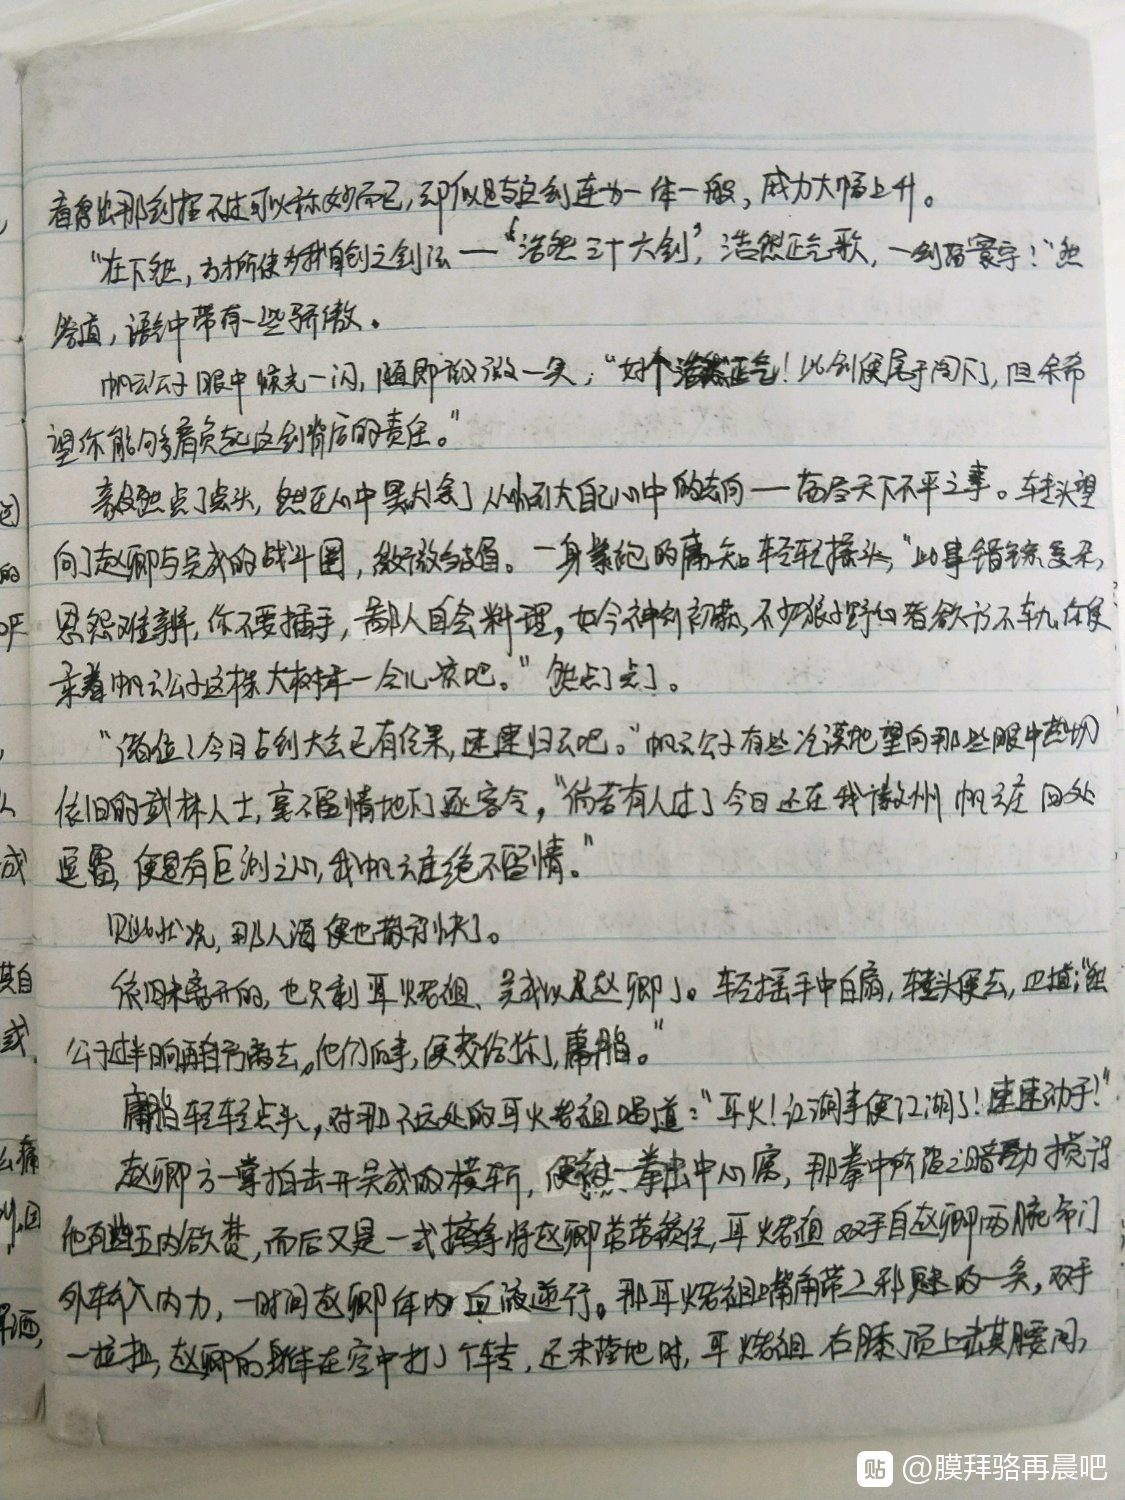 着舞出那剑招不过可以称妙而已，却似是与这剑连为一体一般，威力大幅上升。
“在下然，方才所使为我自创之剑法——‘浩然三十六剑’，浩然正气歌，一剑荡寰宇！”然
答道，语气中带有一些骄傲。
帆云公子眼中惊光一闪，随即微微一笑，“好个浩然正气！此剑便属于阁下了，但余希
望你能够肩负起这剑背后的责任。”
然点了点头，然在心中自己心中的志向——荡尽天下不平之事。转头望
向了赵卿与吴成的战斗圈，微微皱眉。一身紫袍的轻轻摇头，“此事错综复杂，
恩怨难辨，你不要插手，鄙人自会料理，如今神剑初获，不少狼子野心者欲行不轨，你便
乘着帆云公子这棵大树乘一会儿凉吧。”然点了点了。
“诸位！今日占剑大会已有结果，速速归去吧。”帆云公子有些冷漠地望向那些眼中热切
依旧的武林人士，毫不留情地下了逐客令，“倘若有人过了今日还在我徽州帆云庄四处
逗留，便是有叵测之心，我帆云庄绝不留情。”
见此状况，那人海便也散得快了。
依旧未离开的，也只剩耳火老祖、吴成以及赵卿了。轻摇手中白扇，转头便去，也道：“然
公子过半晌再自行离去。他们的事，便交给你了，。”
轻轻点头，对那不远处的耳火老祖喝道：“耳火！江湖事便江湖了！速速动手！”
赵卿方一掌拍去开吴成的横斩，便被一拳击中心窝，那拳中所混之暗劲搅得
他五内欲焚，而后又是一式擒拿将赵卿牢牢锁住，耳火老祖双手自赵卿两腕命门
外转入内力，一时间赵卿体内血液逆行。那耳火老祖嘴角带上邪魅的一笑，双手
一拉扯，赵卿的身体在空中打了个转，还未落地时，耳火老祖右膝顶上击其腰间，
贴 @膜拜骆再晨吧